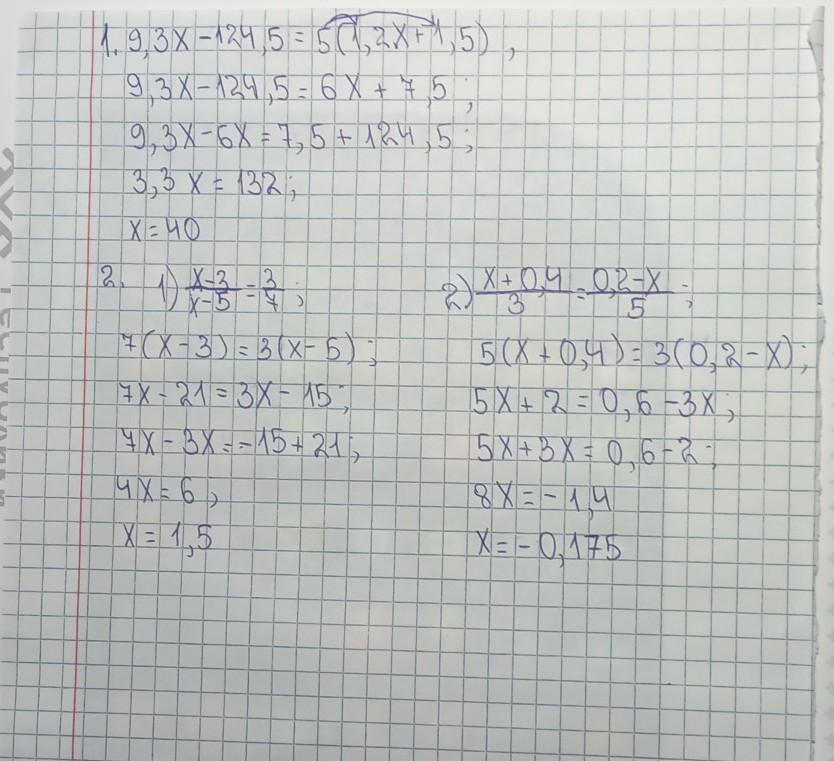 1. 9,3x-124,5=5(1,2x+1,5),
9,3x-124,5=6x+7,5;
9,3x-6x=7,5+124,5;
3,3x=132;
x=40
2. 1) (x-3)/(x-5)=3/7;
7(x-3)=3(x-5);
7x-21=3x-15;
7x-3x=-15+21;
4x=6;
x=1,5
2) (x+0,4)/3=(0,2-x)/5;
5(x+0,4)=3(0,2-x);
5x+2=0,6-3x;
5x+3x=0,6-2;
8x=-1,4
x=-0,175